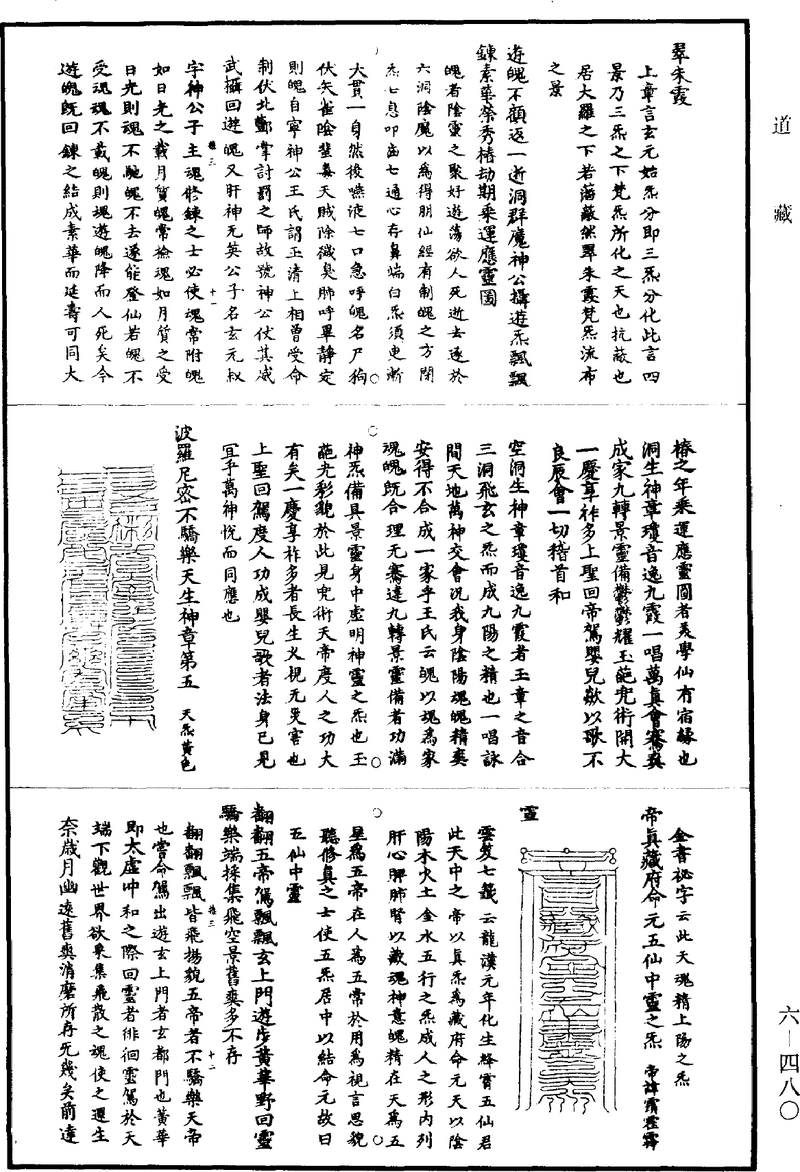 道藏
翠朱霞
上章言玄元始炁分即三炁分化此言四
景乃三炁之下梵炁所化之天也抗蔽也
居大羅之下若蕩蔽然翠朱霞梵炁流布
之景
遊魄不顧返一逝洞群魔神公攝遊炁飄飄
鍊素華榮秀椿劫期乘運應靈圖
魄者陰靈之聚好遊蕩欲人死逝去逐於
六洞陰魔以為得朋仙經有制魄之方閉
炁七息叩齒七通心存鼻端白炁須臾漸
大貫一自然後嚥液七口急呼魄名尸狗
伏矢雀陰蜚毒天賊除穢臭肺呼畢靜定
則魄自寧神公王氏謂玉清上相曾受命
制伏北酆掌討罰之師故號神公仗其威
武攝回遊魄又肝神无英公子名玄元叔
字神公子主魂修鍊之士必使魂常附魄
如日光之載月質魄常撿魂如月質之受
日光則魂不馳魄不去遂能登仙若魄不
受魂魂不載魄則魂遊魄降而人死矣今
遊魄既回鍊之結成素華而延壽可同大
椿之年乘運應靈圖者羙學仙有宿緣也
洞生神章瓊音逸九霞一唱萬真會騫爽
成家九轉景靈備鬱鬱耀玉葩兜術開大
一慶享祚多上聖回帝駕嬰兒歘以歌不
良辰會一切稽首和
空洞生神章瓊音逸九霞者玉章之音合
三洞飛玄之炁而成九陽之精也一唱詠
間天地萬神交會況我身陰陽魂魄精爽
安得不合成一家乎王氏云魄以魂為家
魂魄既合理无騫違九轉景靈備者功滿
神炁備具景靈身中虛明神靈之炁也玉
葩光彩貌於此見兜術天帝度人之功大
有矣一慶享祚多者長生久視无災害也
上聖回駕度人功成嬰兒歌者法身已見
宜乎萬神悅而同應也
波羅尼密不驕樂天生神章第五 天炁黃色
金書祕字云此天魂精上陽之炁
帝真藏府命元五仙中靈之炁
靈
雲笈七籤云龍漢元年化生梓寶五仙君
此天中之帝以真炁為藏府命元天以陰
陽木火土金水五行之炁成人之形內列
肝心脾肺腎以藏魂神意魄精在天為五
星為五帝在人為五常於用為視言思貌
聽修真之士使五炁居中以結命元故曰
五仙中靈
翻翻五帝駕飄飄玄上門遊步黃華野回靈
驕樂端採集飛空景舊爽多不存
翻翻飄飄皆飛揚貌五帝者不驕樂天帝
也嘗命駕出遊玄上門者玄都門也黃華
即太虛冲和之際回靈者徘徊靈駕於天
端下觀世界欲采集飛散之魂使之還生
奈歲月幽遠舊爽消磨所存无幾矣前達
六—四八〇